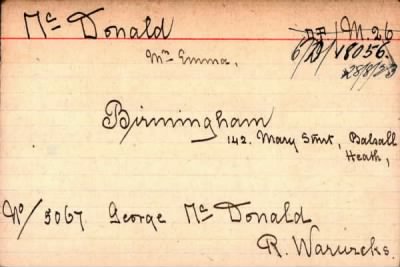 Mc Donald
M. 26
6/D/18056.
28/8/28
Mrs Emma,
Birmingham
142. Mary Street, Balsall
Heath,
No/3067 George Mc Donald
R. Warwicks.